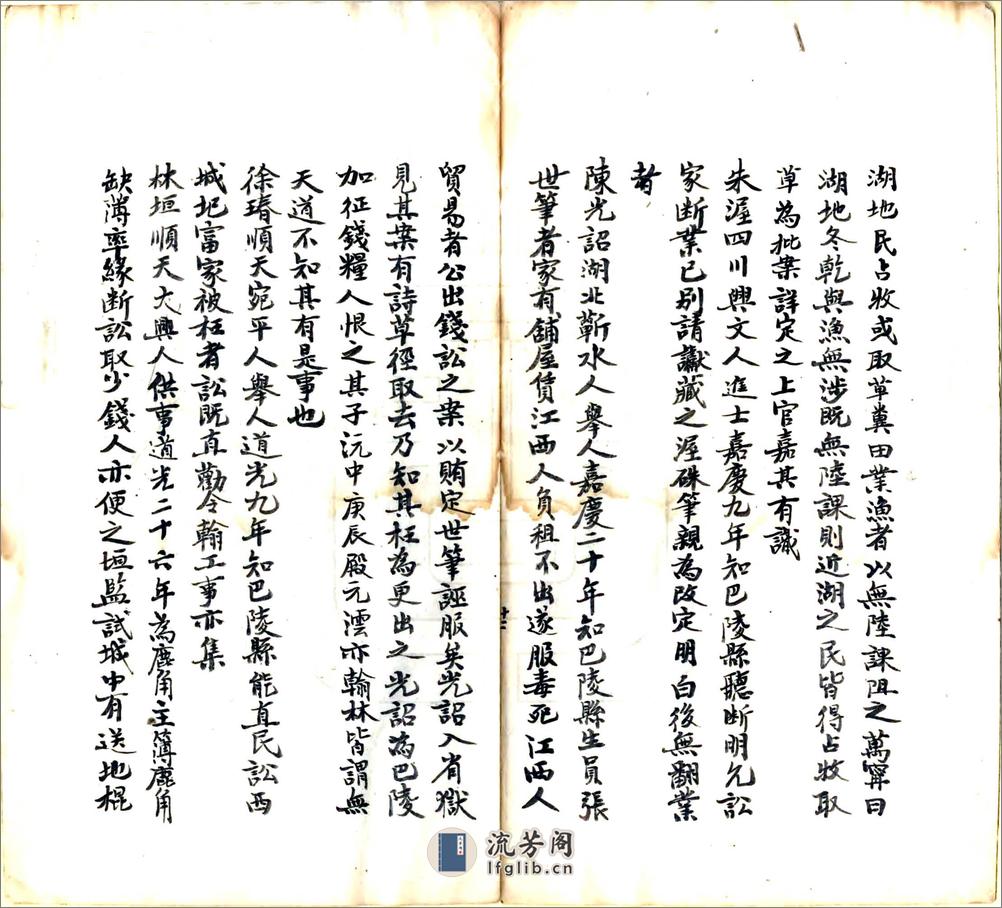 湖地民占牧或取草糞田業漁者以無陸課阻之萬甯曰
湖地冬乾與漁無涉既無陸課則近湖之民皆得占牧取
草為批案詳定之上官嘉其有識
朱渥四川興文人進士嘉慶九年知巴陵縣聽斷明允訟
家断業已别請讞藏之渥硃筆親為改定明白後無翻業
者
陳光詔湖北蘄水人舉人嘉慶二十年知巴陵縣生員張
世筆者家有舖屋賃江西人負租不出遂服毒死江西人
貿易者公出錢訟之案以賄定世筆誣服矣光詔入省獄
見其案有詩草徑取去乃知其枉為更出之光詔為巴陵
加征錢糧人恨之其子沆中庚辰殿元澐亦翰林皆謂無
天道不知其有是事也
徐瑃順天宛平人舉人道光九年知巴陵縣能直民訟西
城圮富家被枉者訟既直勸令翰工事亦集
林垣順天大興人供事道光二十六年為鹿角主簿鹿角
缺薄率緣断訟取少錢人亦便之垣監試城中有送地棍
十二
流芳阁
lfglib.cn